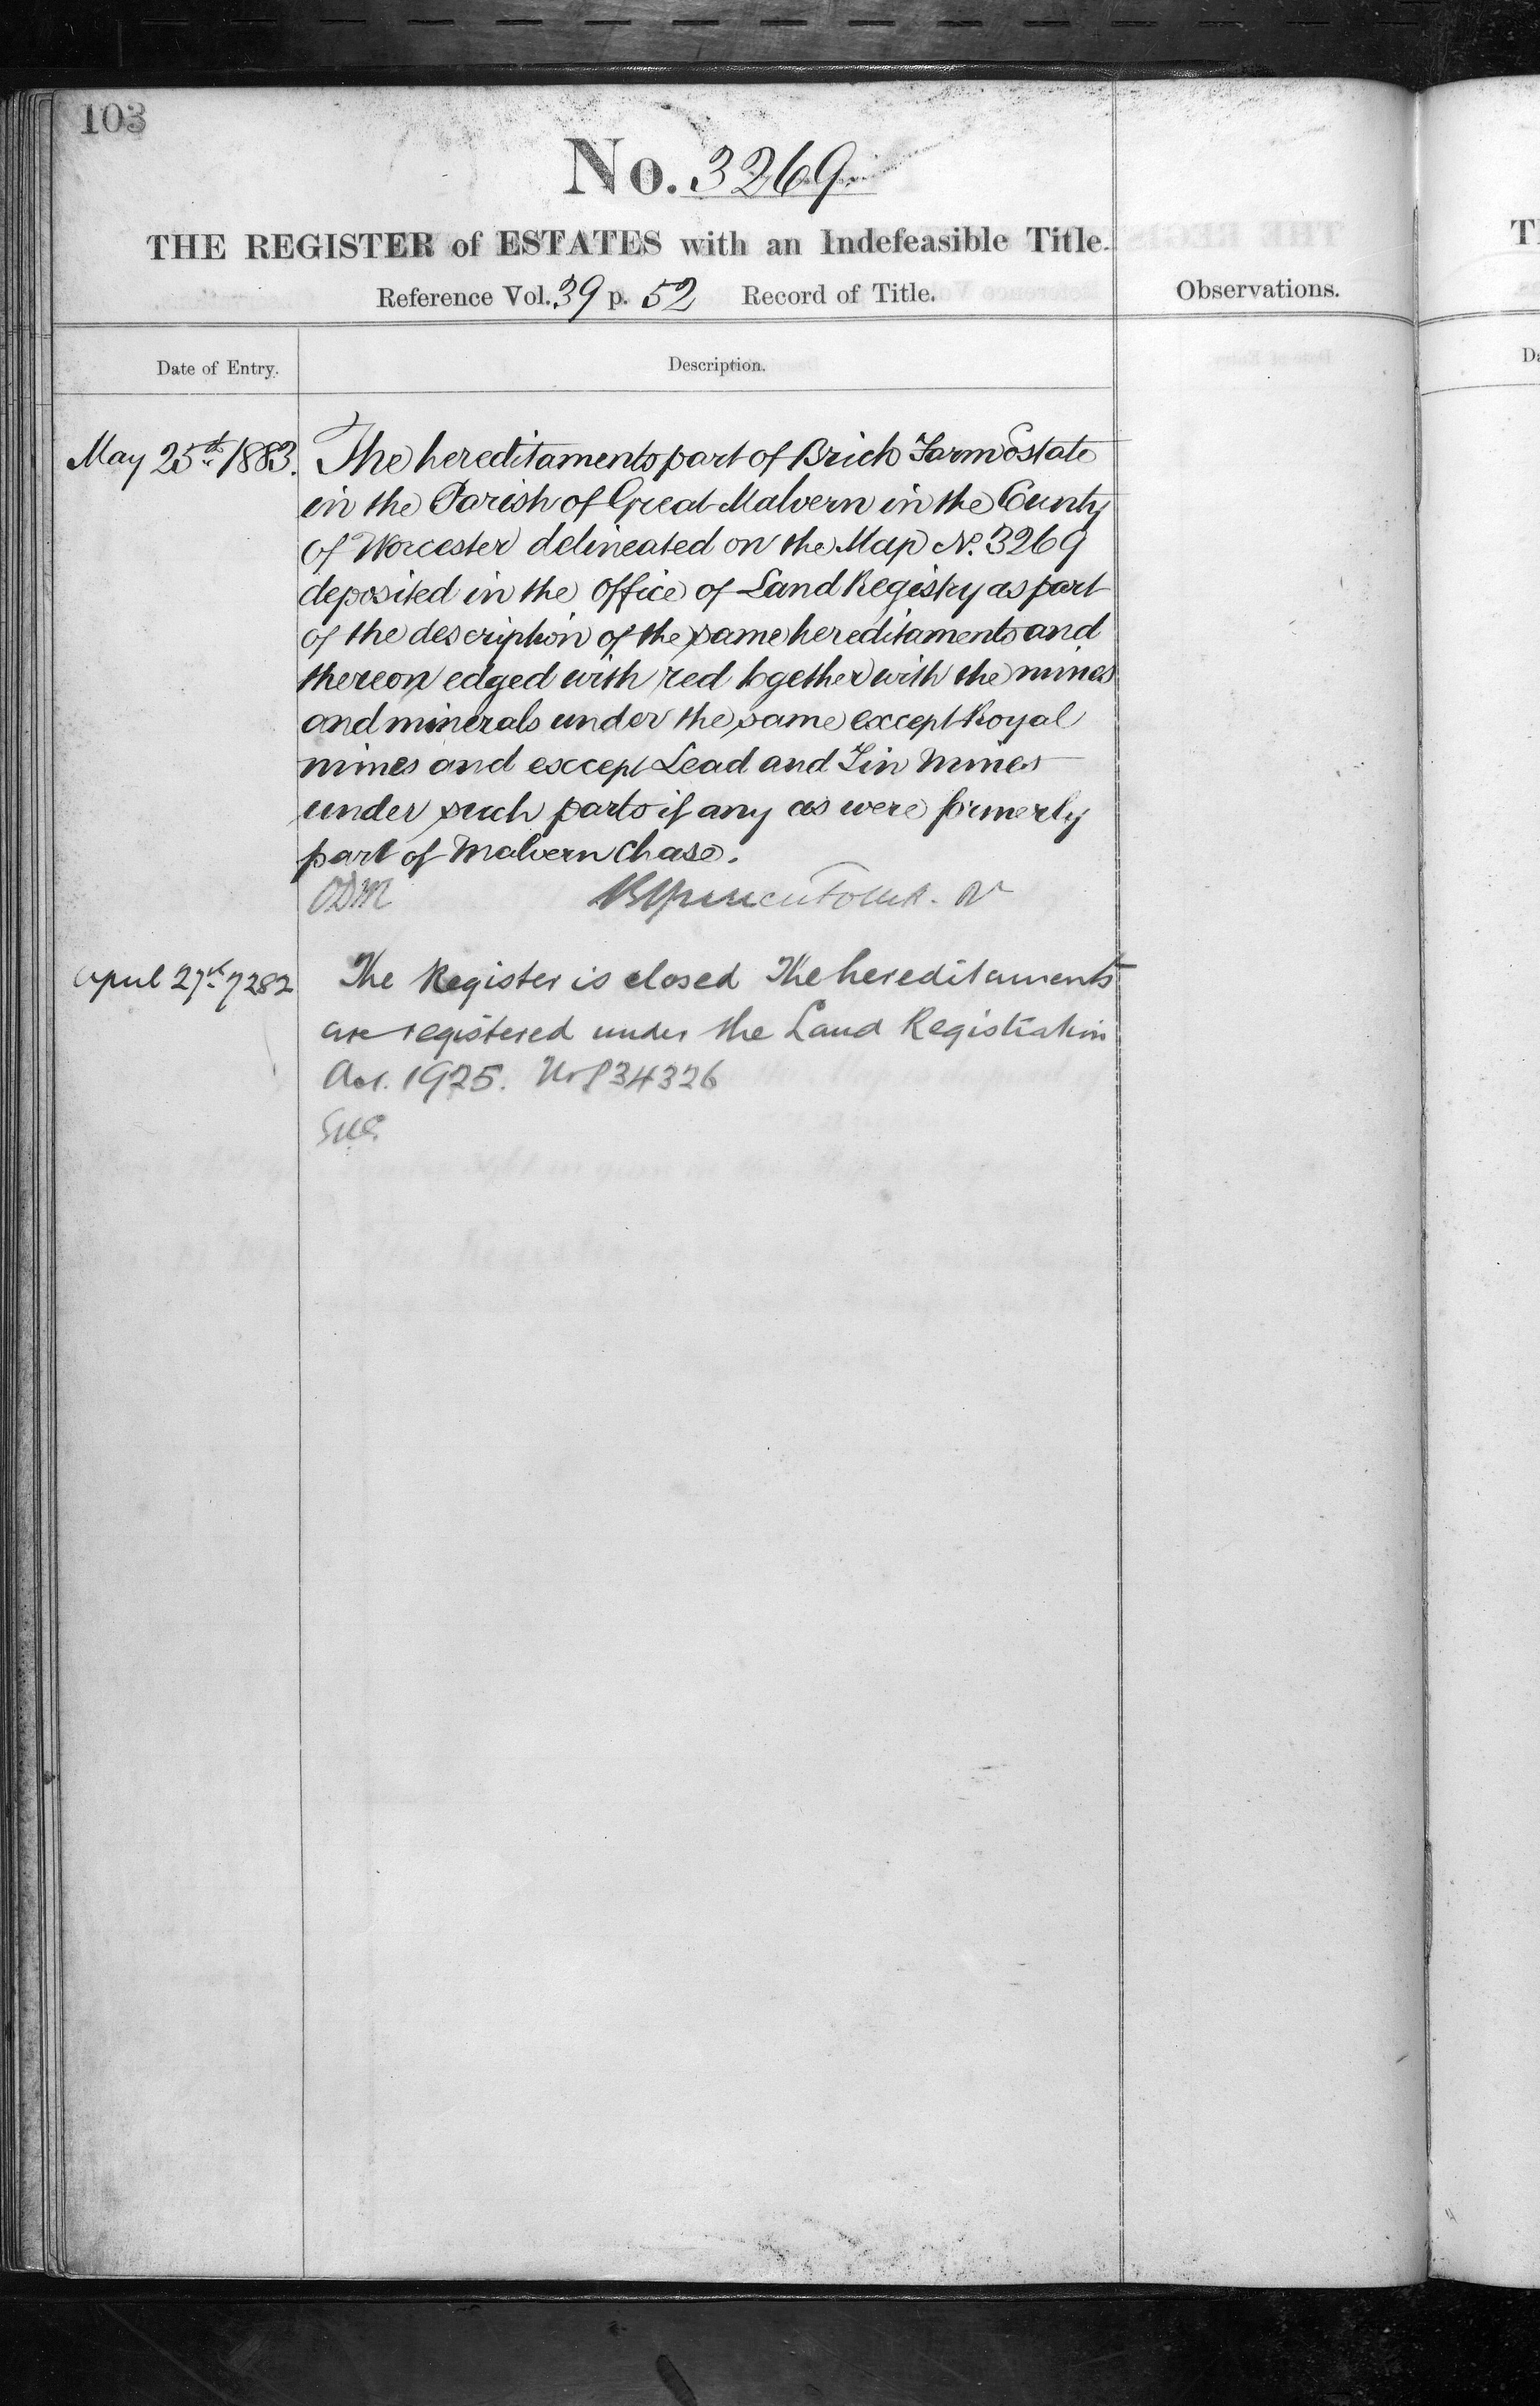 103
No. 3269
THE REGISTER of ESTATES with an Indefeasible Title.
Reference Vol. 39 p. 52 Record of Title.
Observations.
Date of Entry.
Description.
May 25th 1883.
The hereditaments part of Brick Farm Estate
in the Parish of Great Malvern in the County
of Worcester delineated on the Map No. 3269
deposited in the Office of Land Registry as part
of the description of the same hereditaments and
thereon edged with red together with the mines
and minerals under the same except Royal
mines and except Lead and Tin Mines
under such parts if any as were formerly
part of Malvern Chase.
ODM
April 27
The Register is closed The hereditaments
are registered under the Land Registration
Act. 1925. 34326